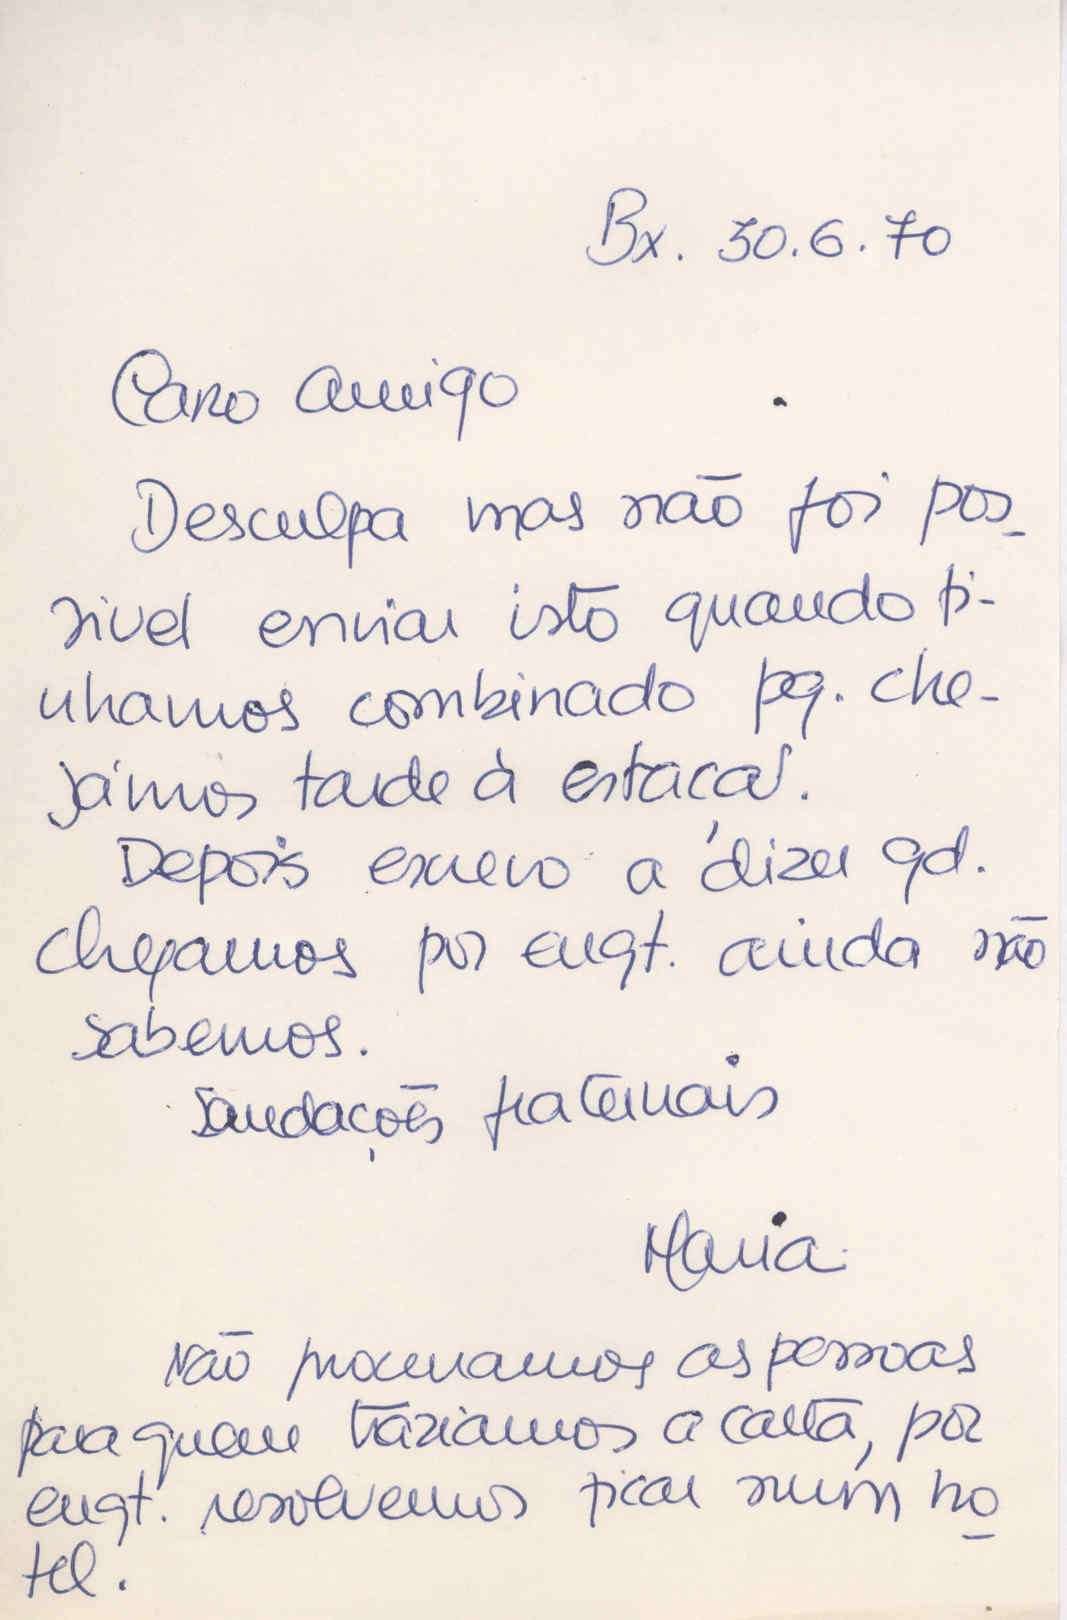 Bx. 30.6.70
Caro amigo
Desculpa mas não foi pos-
sivel enviar isto quando ti-
nhamos combinado pq. che-
gámos tarde à estacao.
Depois escrevo a dizer qd.
chegamos por enqt. ainda não
sabemos.
Saudações fraternais
Maria
Não procuramos as pessoas
para quem traziamos a carta, por
enqt. resolvemos ficar num ho-
tel.